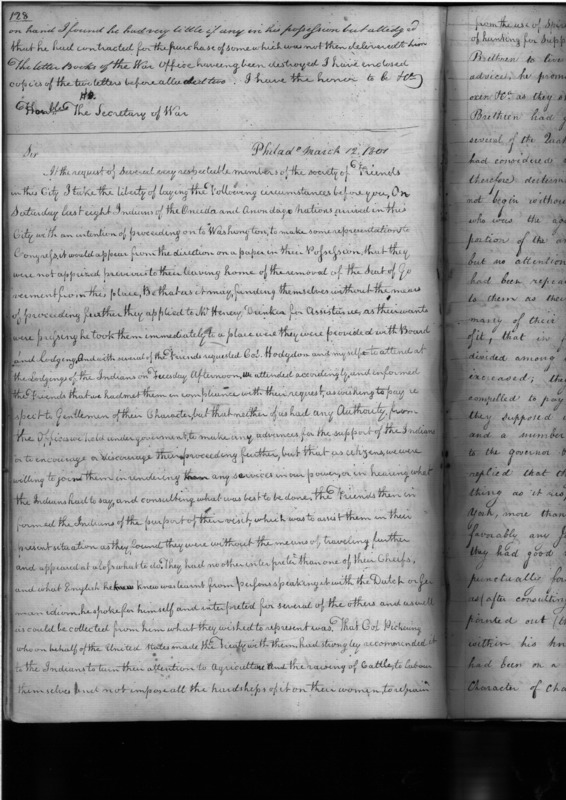 128
on hand I found he had very little if any in his possession but alledg'd
that he had contracted for the purchase of some which was not then delivered to him
The letter Books of the War Office having been destroyed I have enclosed
copies of the two letters before alluded too. I have the honor to be &c
Honble The Secretary of War
Philada March 12. 1801
Sir
At the request of Several very respectable members of the society of Friends
in this City I take the liberty of laying the following circumstances before you, On
Saturday last eight Indians of the Oneida and Onondago nations arrived in this
City with an intention of proceeding on to Washington, to make some representations to
Congress it would appear from the direction on a paper in their Possession, that they
were not apprised previous to their leaving home of the removal of the Seat of Go
verment from this place, Be that as it may, finding themselves without the means
of proceeding further they applied to Mr Henry Drinker for Assistance, as their wants
were pressing he took them immediately to a place were they were provided with Board
and lodging, and with several of the Friends requested Col. Hodgdon and my self to attend at
the Lodgings of the Indians on Tuesday Afternoon, we attended accordingly and informed
the Friends that we had met them in compliance with their request, as wishing to pay re
spect to Gentlemen of their Character, but that neither of us had any Authority, from
the Offices we held under goverment, to make any advances for the support of the Indians
or to encourage or discourage their proceeding further, but that as citizens, we were
willing to join them in rendering them any service in our power, or in hearing what
the Indians had to say, and consulting what was best to be done, the Friends then in
formed the Indians of the purport of their visit, which was to assist them in their
present situation as they found they were without the means of traveling further
and appeared at a loss what to do. They had no other interpreter than one of their Cheifs,
and what English he knew was learnt from Persons speaking it with the Dutch or Ger
man idiom, he spoke for himself and interpreted for several of the others and as well
as could be collected from him what they wished to represent was, That Col Pickering
who on behalf of the United States made the Treaty with them had strongley accomended it
to the Indians to turn their attention to Agriculture and the raising of Cattle, to labour
themselves and not impose all the hardships of it on their women, to refrain
from the use of
of hunting for
Brethren to live
advice, he prom
over &c as they
Brethren had
several of the
had considered
therefore
not begin without
who was the
portion of the
but no attention
had been
to them as their
many of their
fit, that in
divided among
increased; the
compelled to pay
they supposed
and a member
to the governor
replied that th
thing as it
York, more than
favorably any
they had good
punctually for
as after consulting
pointed out
within his
had been on a
Character of Cha